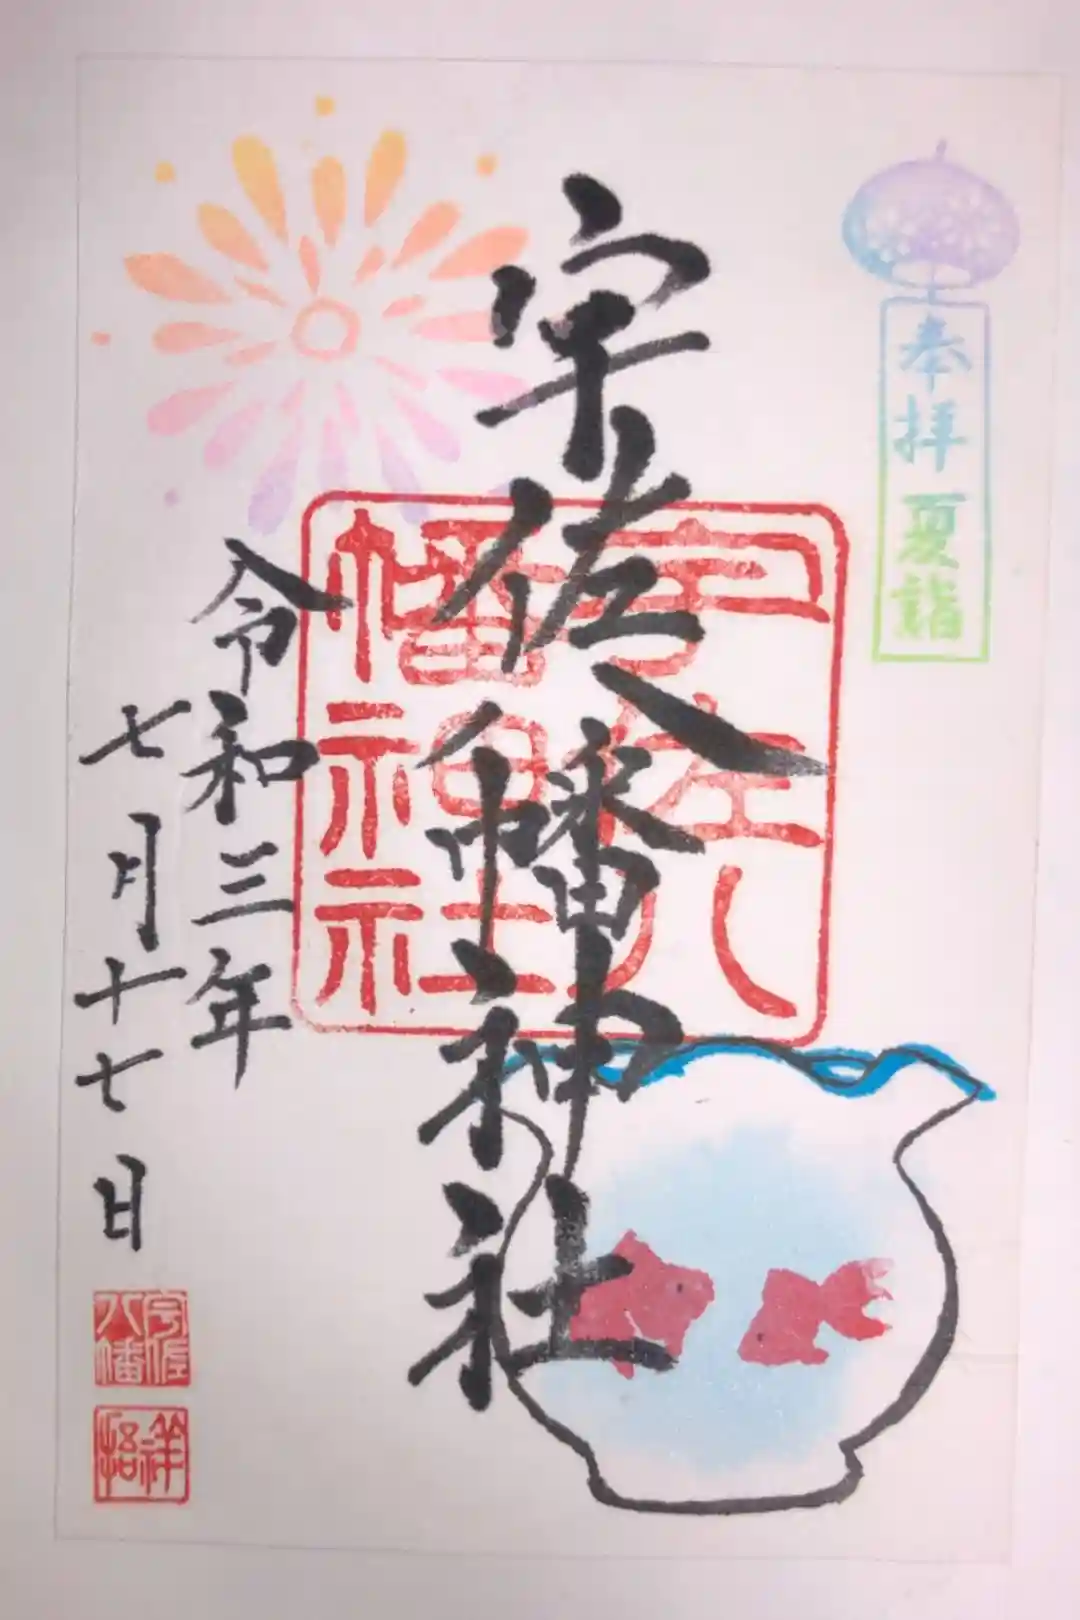 奉拝 夏詣
宇佐八幡神社
宇佐八幡神社
令和三年
七月十七日
宇佐八幡